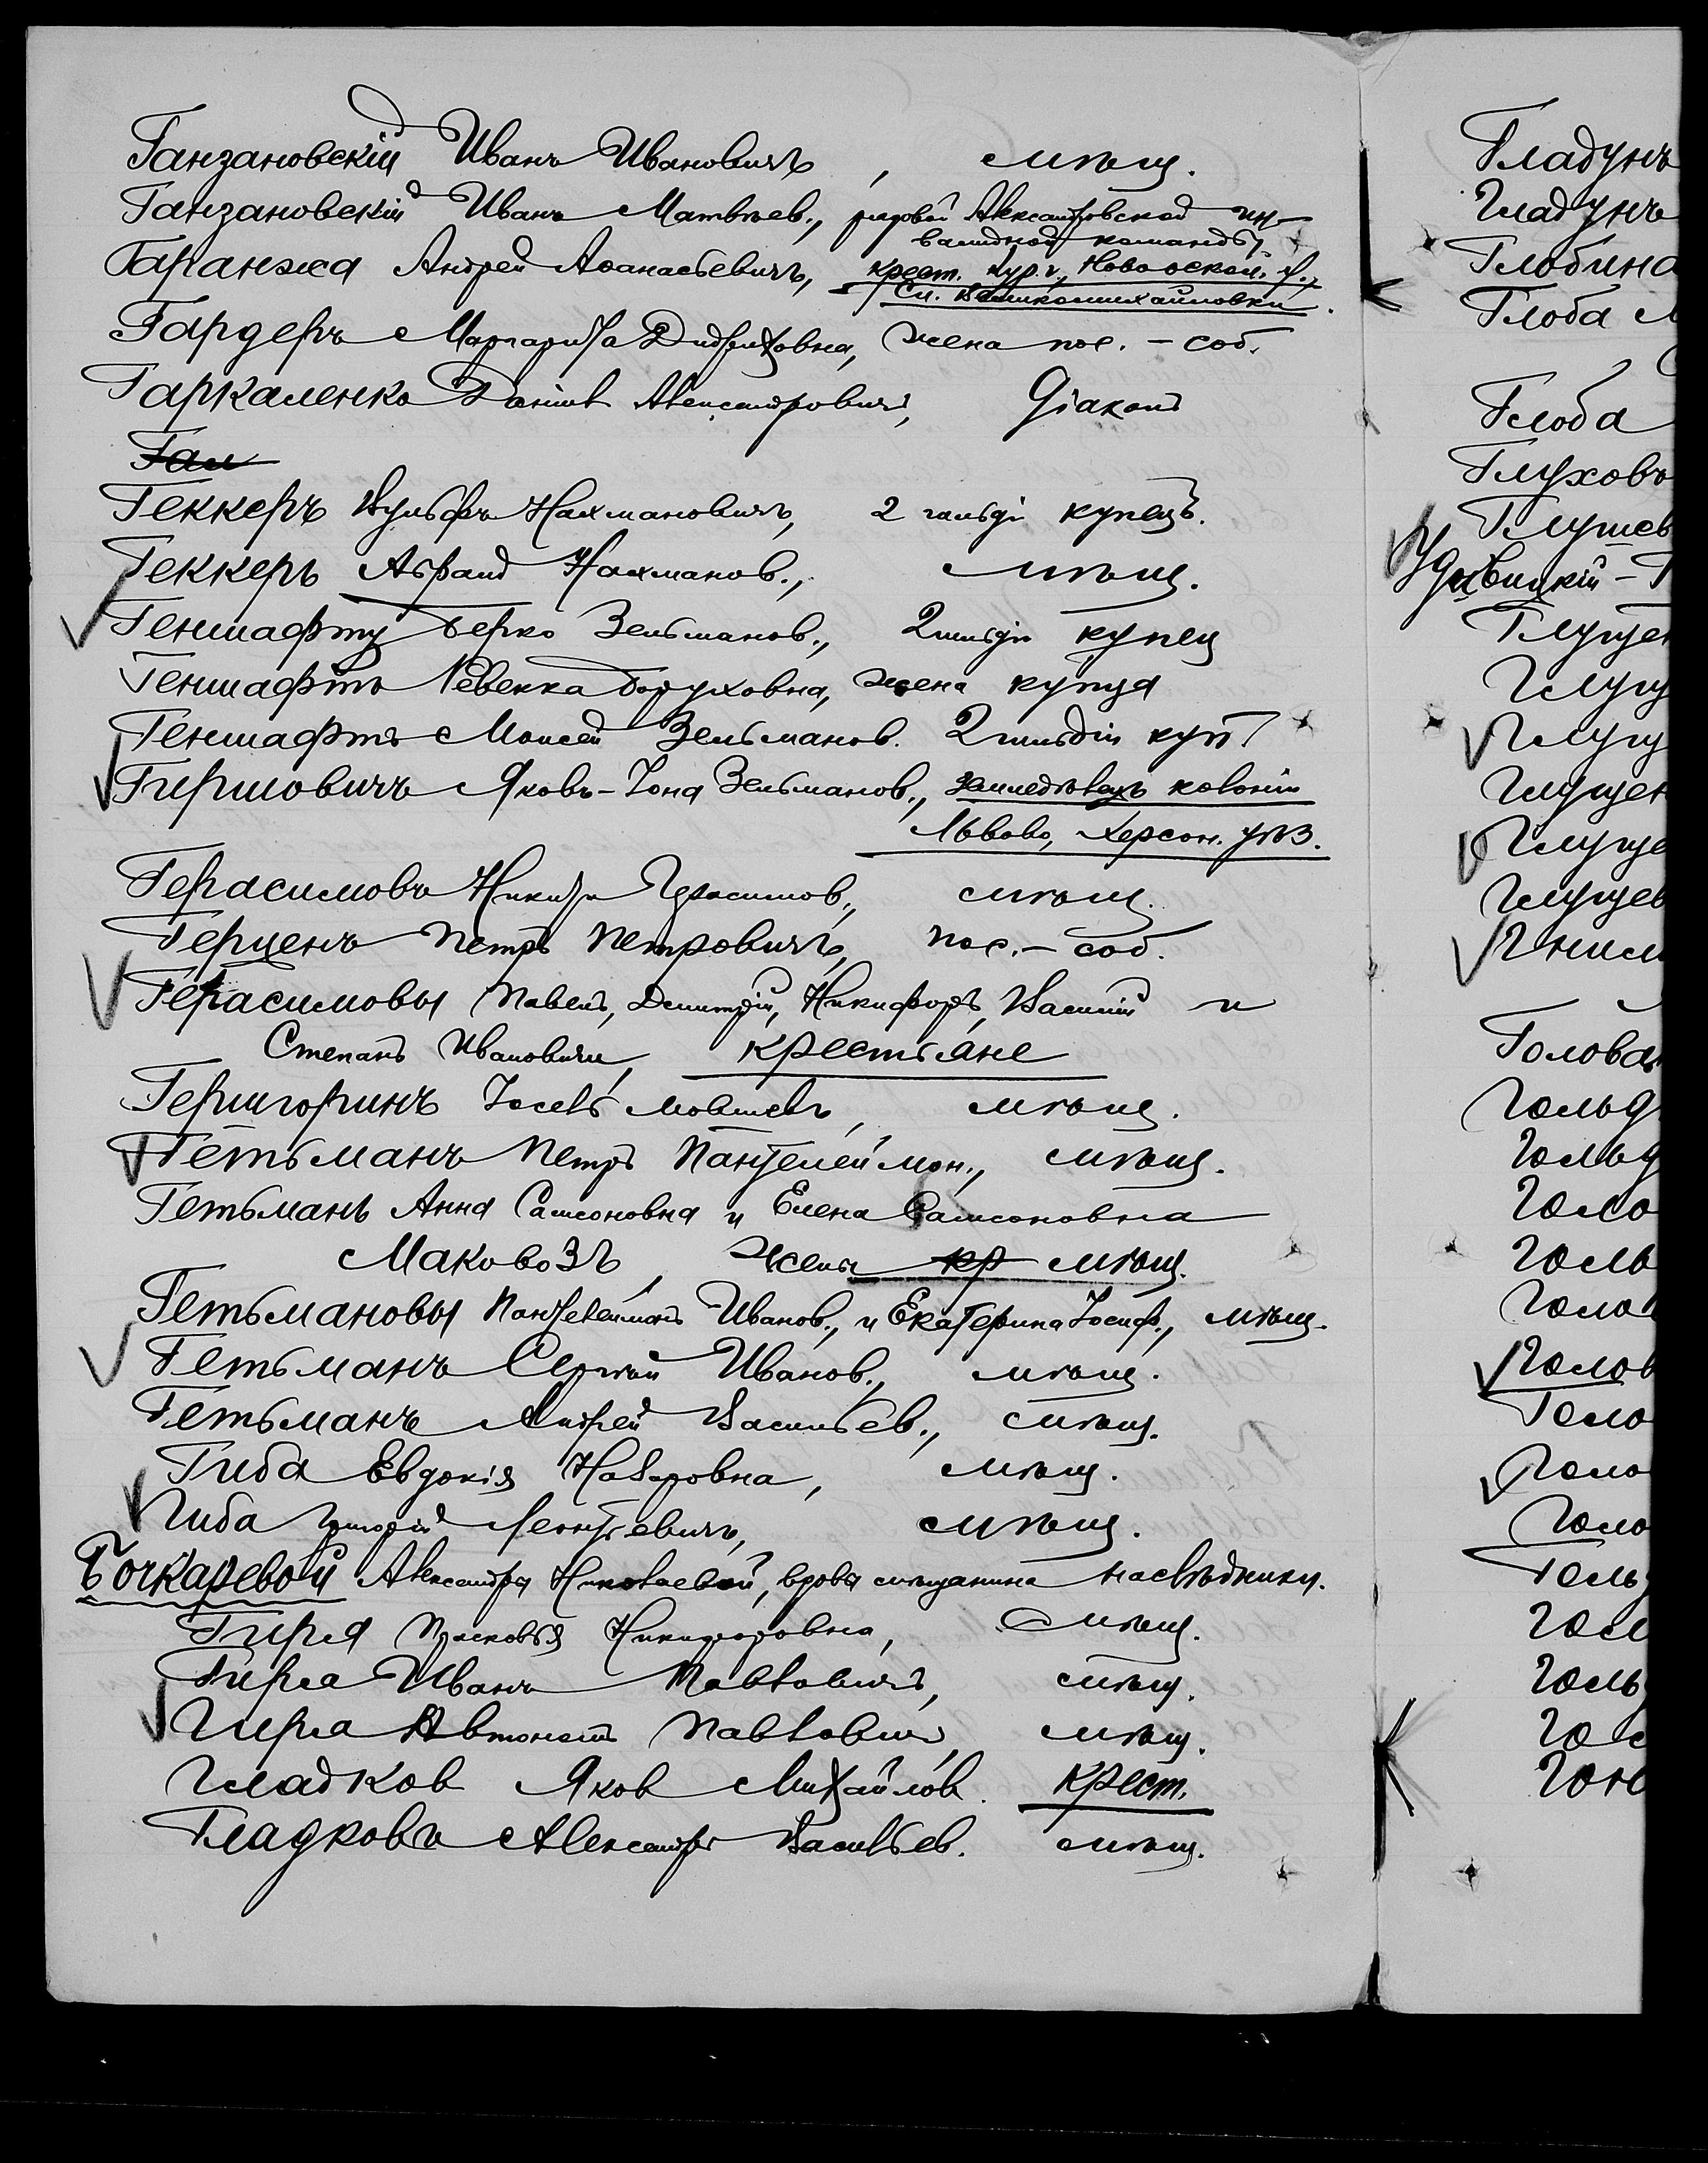 Ганзановскій Иванъ Ивановичъ, мѣщ.
Ганзановскій Иванъ Матвѣев., рядовой Александровской ин-
валидной команды
Гаранжа Андрей Аѳанасьевичъ, крест. Кур. г., Новооскол. у.,
Сл. Великомихайловки.
Гардеръ Маргарита Дидриховна, жена пос.-соб.
Гаркаленко Даніилъ Александровичъ, Діаконъ
Гал
Геккеръ Вульфъ Нахмановичъ, 2 гильдіи купецъ.
Геккеръ Абрамъ Нахманов., мѣщ.
Геншафтъ Берко Зельманов., 2 гильдіи купец
Геншафтъ Ревекка Боруховна, жена купца
Геншафтъ Моисей Зельманов. 2 гильдіи куп.
Гиршовичъ Яковъ-Іона Зельманов., земледѣлецъ колоніи
Львово, Херсон. уѣз.
Герасимовъ Никита Герасимов., мѣщ.
Герценъ Петръ Петровичъ, пос.-соб.
Герасимовы Павелъ, Дмитрій, Никифоръ, Василій и
Степанъ Ивановичи, крестьяне
Гершгоринъ Іосель Мовшевъ, мѣщ.
Гетьманъ Петръ Пантелеймон., мѣщ.
Гетьманъ Анна Самсоновна и Елена Самсоновна
Маковозъ, жены кр мѣщ.
Гетьмановы Пантелеймонъ Иванов., и Екатерина Іосиф., мѣщ.
Гетьманъ Сергѣй Иванов., мѣщ.
Гетьманъ Андрей Васильев., мѣщ.
Гиба Евдокія Назаровна, мѣщ.
Гиба Григорій Леонтьевичъ, мѣщ.
Бочкаревой Александра Николаевой, вдова мѣщанина наслѣдники.
Гирла Прасковья Никифоровна, мѣщ.
Гирла Иванъ Павловичъ, мѣщ.
Гирла Автономъ Павлович, мѣщ.
Гладков Яков Михайлов. крест.
Гладковъ Александръ Васильев. мѣщ.
Гладунъ
Гладунъ
Глобина
Глоба М
Глоба
Глуховъ
Глушев
Удовицкій - Г
Глуще
Глущ
Глущ
Глущен
Глуще
Глущев
Гнил
Голова
Гольд
Гольд
Голо
Голь
Голо
Голов
Голо
Голо
Голо
Голь
Гол
Голь
Гон